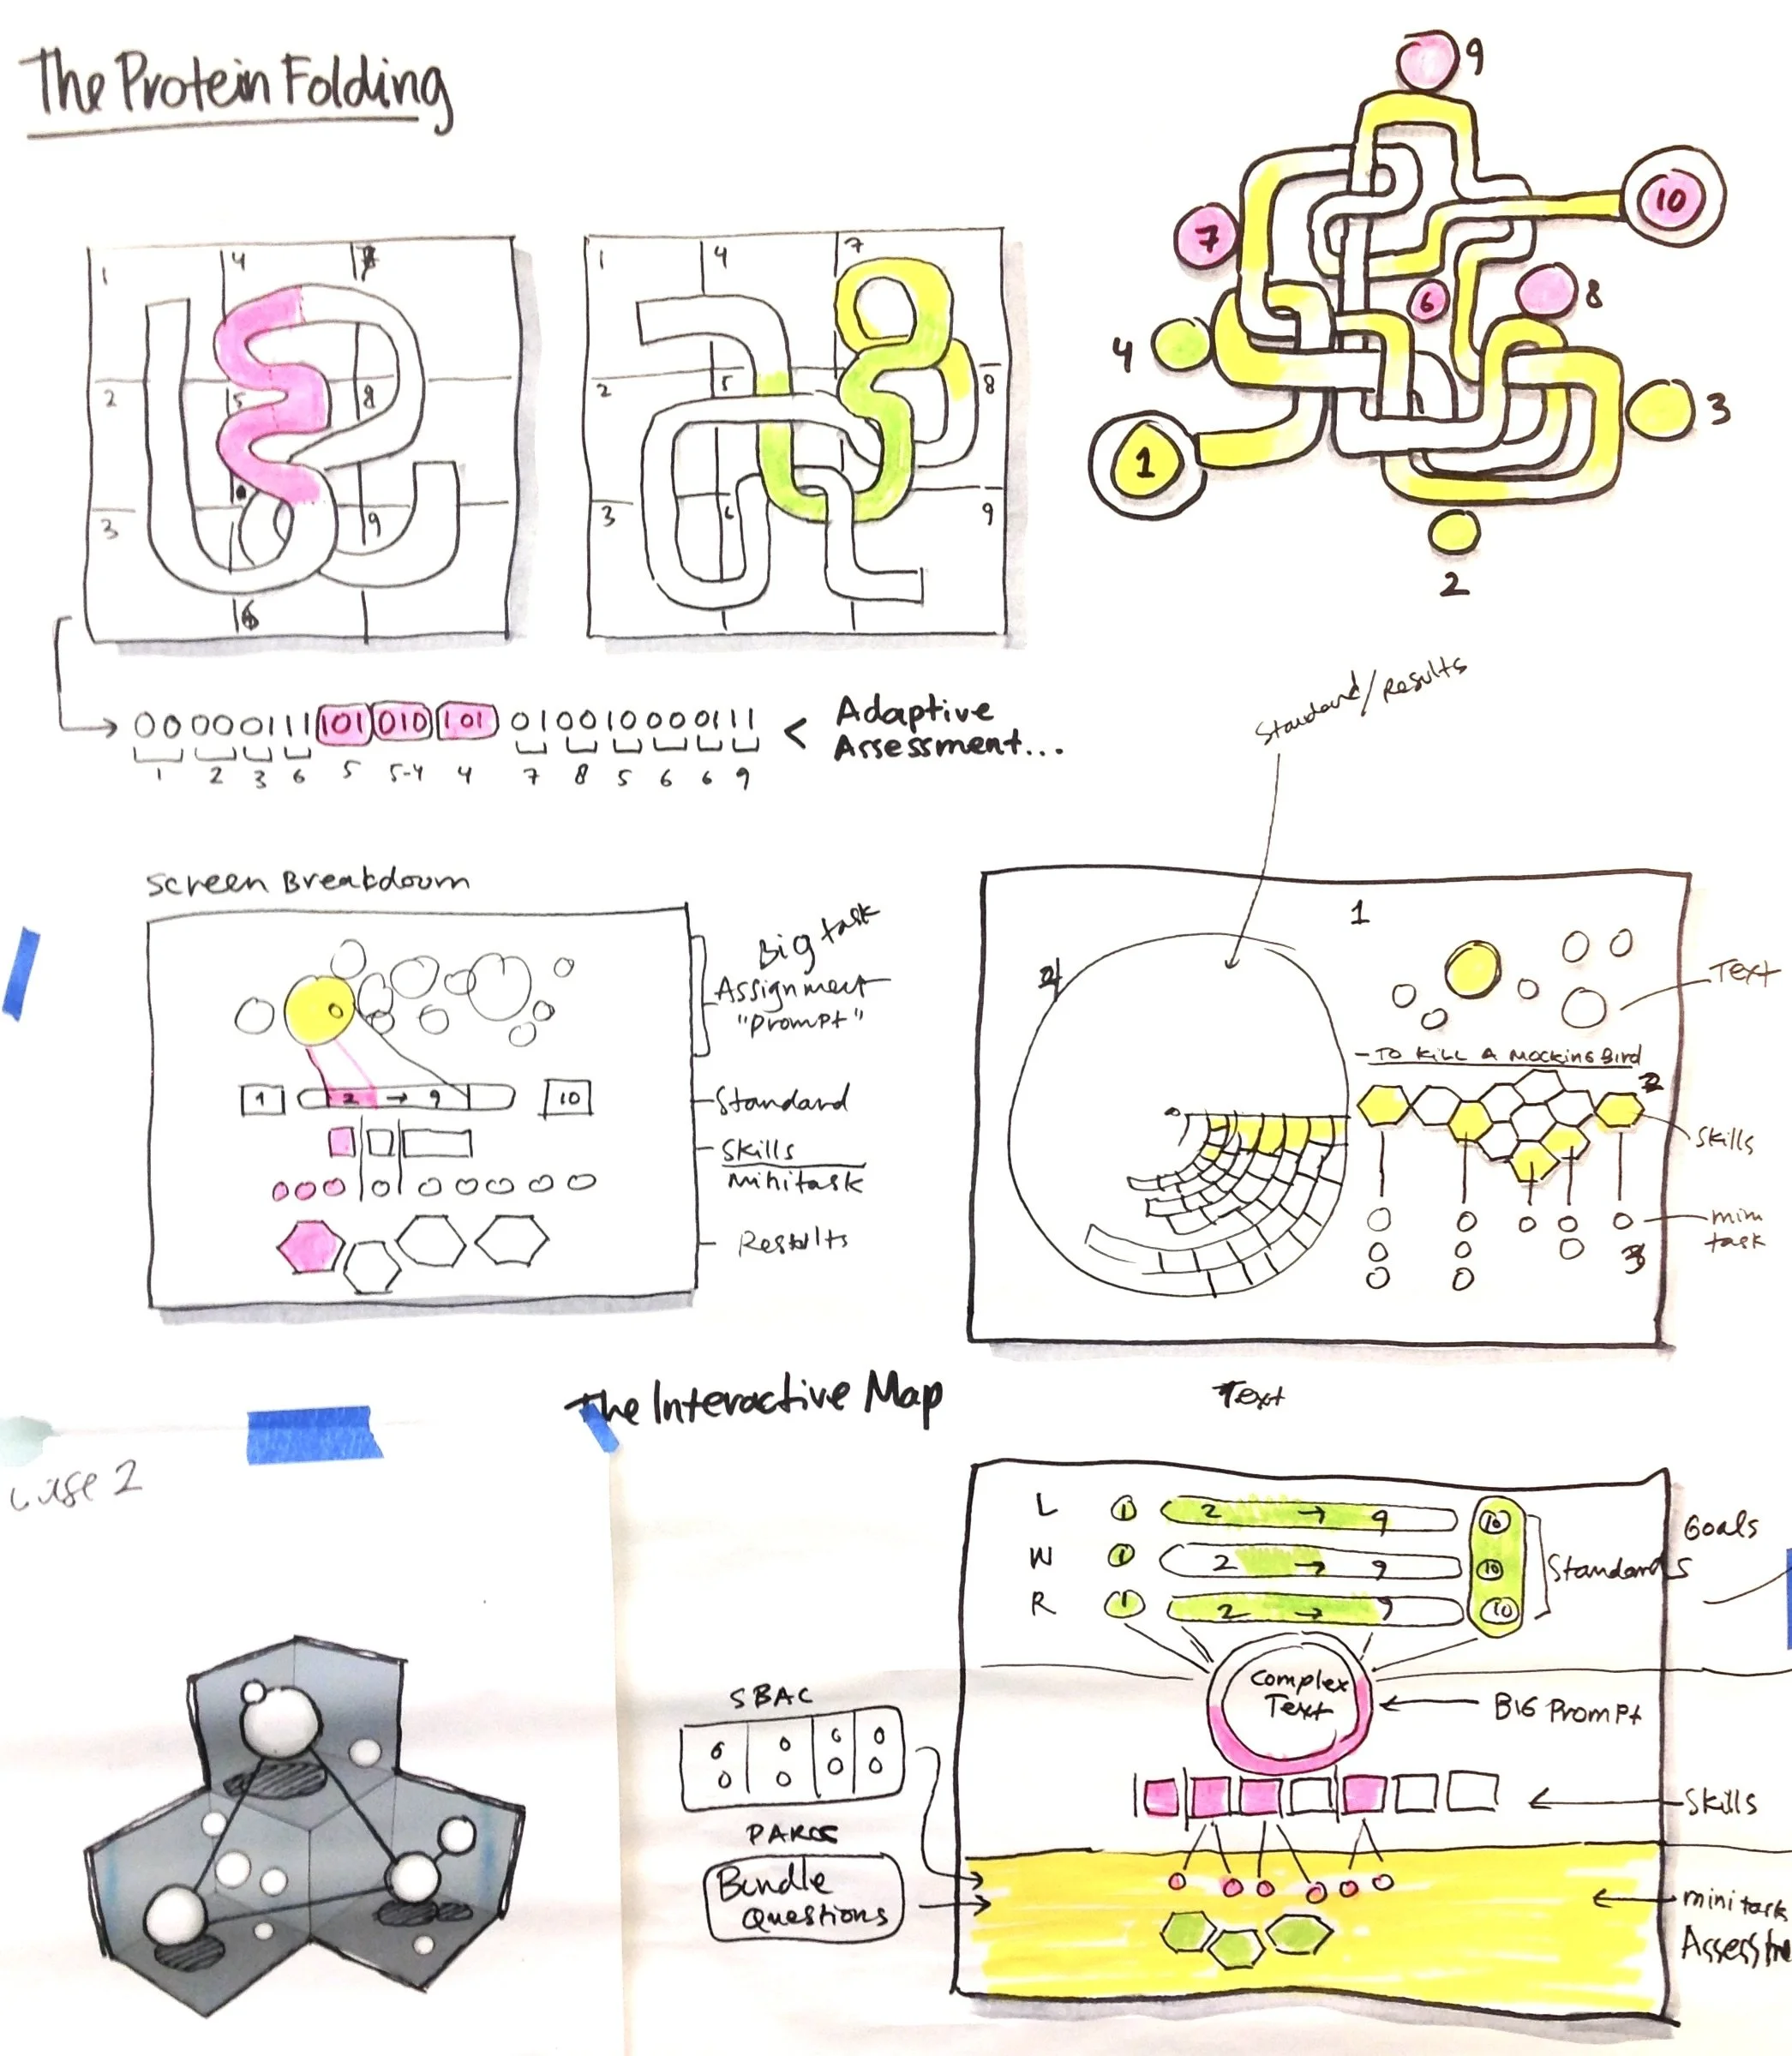 The Protein Folding
9
10
7
6
8
4
3
1
2
1 4 7
2 5 8
3 9
6
1 4 7
2 5 8
3 6 9
00000111 101 010 101 010010000111 < Adaptive
Assessment...
1 2 3 6 5 5-4 4 7 8 5 6 6 9
Standard/Results
Screen Breakdown
Big task
Assignment
"prompt"
1 2 → 9 10
Standard
Skills
minitask
Results
1
Text
- To Kill A Mockingbird
2
Skills
mini
task
3
The Interactive Map
Text
case 2
L 1 2 → 9 10
W 1 2 → 9 10
R 1 2 → 9 10
Goals
Standards
Complex
Text
Big Prompt
SBAC
Skills
Bundle
Questions
minitask